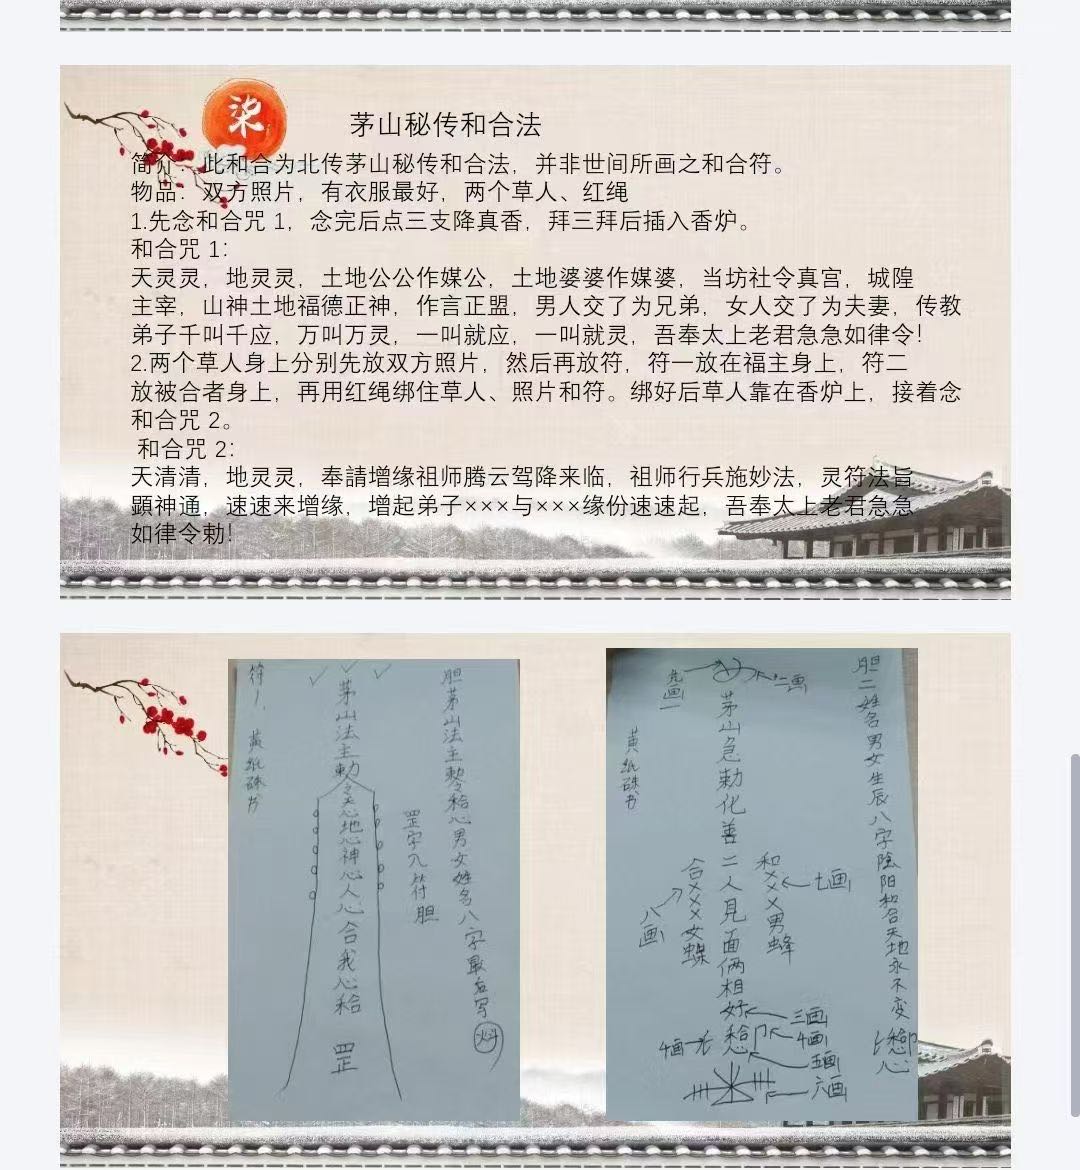 柒
茅山秘传和合法
简介：此和合为北传茅山秘传和合法，并非世间所画之和合符。
物品：双方照片，有衣服最好，两个草人、红绳
1.先念和合咒 1，念完后点三支降真香，拜三拜后插入香炉。
和合咒 1：
天灵灵，地灵灵，土地公公作媒公，土地婆婆作媒婆，当坊社令真宫，城隍
主宰，山神土地福德正神，作言正盟，男人交了为兄弟，女人交了为夫妻，传教
弟子千叫千应，万叫万灵，一叫就应，一叫就灵，吾奉太上老君急急如律令！
2.两个草人身上分别先放双方照片，然后再放符，符一放在福主身上，符二
放被合者身上，再用红绳绑住草人、照片和符。绑好后草人靠在香炉上，接着念
和合咒 2。
和合咒 2：
天清清，地灵灵，奉請增缘祖师腾云驾降来临，祖师行兵施妙法，灵符法旨
顕神通，速速来增缘，增起弟子×××与×××缘份速速起，吾奉太上老君急急
如律令勅！
符1、黄纸硃书
茅山法主勅
天心地心神心人心合我心
罡
罡字入符胆
胆茅山法主
男女姓名八字最后写
先画一
二画
茅山急勅化善二人见面俩相好
黄纸硃书
和×××男蜂
七画
合×××女蝶
八画
三画
4画
4画
五画
六画
胆二姓名男女生辰八字陰阳和合天地永不变